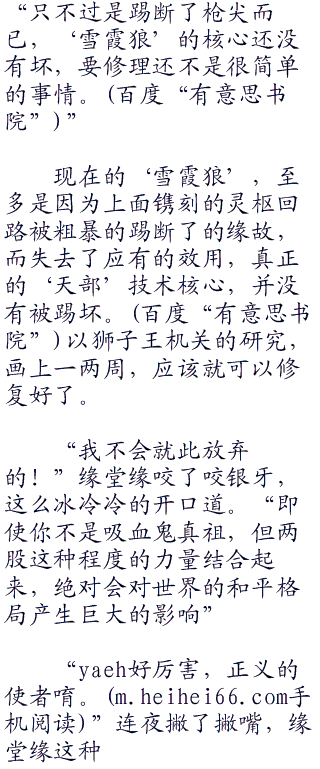 “只不过是踢断了枪尖而
已，‘雪霞狼’的核心还没
有坏，要修理还不是很简单
的事情。(百度“有意思书
院”)”
现在的‘雪霞狼’，至
多是因为上面镌刻的灵枢回
路被粗暴的踢断了的缘故，
而失去了应有的效用，真正
的‘天部’技术核心，并没
有被踢坏。(百度“有意思书
院”)以狮子王机关的研究，
画上一两周，应该就可以修
复好了。
“我不会就此放弃
的！”缘堂缘咬了咬银牙，
这么冰冷冷的开口道。“即
使你不是吸血鬼真祖，但两
股这种程度的力量结合起
来，绝对会对世界的和平格
局产生巨大的影响”
“yaeh好厉害，正义的
使者唷。(m.heihei66.com手
机阅读)”连夜撇了撇嘴，缘
堂缘这种